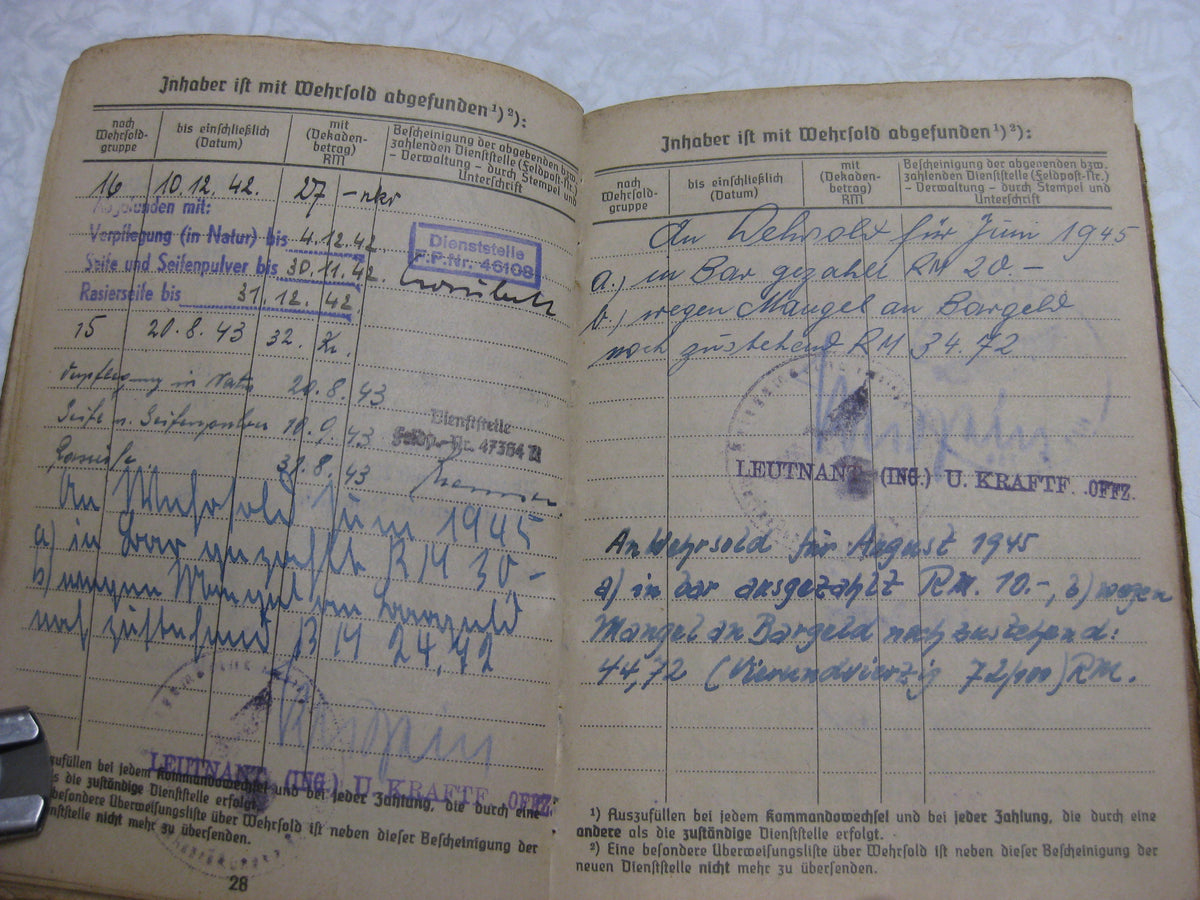 Inhaber ist mit Wehrsold abgefunden¹)²):
nach Wehrsold-gruppe
bis einschließlich (Datum)
mit (Dekaden-betrag) RM
Bescheinigung der abgebenden bzw. zahlenden Dienststelle (Feldpost-Nr.) – Verwaltung – durch Stempel und Unterschrift
16 10.12.42. 27
Abgefunden mit:
Verpflegung (in Natur) bis 4.12.42
Seife und Seifenpulver bis 30.11.42.
Rasierseife bis 31.12.42
Dienststelle
F.P.-Nr. 46108
15 20.8.43 32.
Verpflegung in Natur 20.8.43
Seife u. Seifenpulver 10.9.43
31.8.43
Dienststelle
Feldp.-Nr. 47364
An Wehrsold Juni 1945
a) in bar gezahlt RM 30.-
b) wegen Mangel an Bargeld
noch zustehend RM 24,72
LEUTNANT (ING.) U. KRAFTF. OFFZ.
zufüllen bei jedem Kommandowechsel und bei jeder Zahlung, die durch eine
als die zuständige Dienststelle erfolgt.
besondere Überweisungsliste über Wehrsold ist neben dieser Bescheinigung der
nststelle nicht mehr zu übersenden.
28
Inhaber ist mit Wehrsold abgefunden¹)²):
nach Wehrsold-gruppe
bis einschließlich (Datum)
mit (Dekaden-betrag) RM
Bescheinigung der abgebenden bzw. zahlenden Dienststelle (Feldpost-Nr.) – Verwaltung – durch Stempel und Unterschrift
An Wehrsold für Juni 1945
a.) in Bar gezahlt RM 20.–
b.) wegen Mangel an Bargeld
noch zustehend RM 34.72
LEUTNANT (ING.) U. KRAFTF. OFFZ.
An Wehrsold für August 1945
a) in bar ausgezahlt RM. 10.-, b) wegen
Mangel an Bargeld noch zustehend:
44,72 (Vierundvierzig 72/100) RM.
¹) Auszufüllen bei jedem Kommandowechsel und bei jeder Zahlung, die durch eine
andere als die zuständige Dienststelle erfolgt.
²) Eine besondere Überweisungsliste über Wehrsold ist neben dieser Bescheinigung der
neuen Dienststelle nicht mehr zu übersenden.